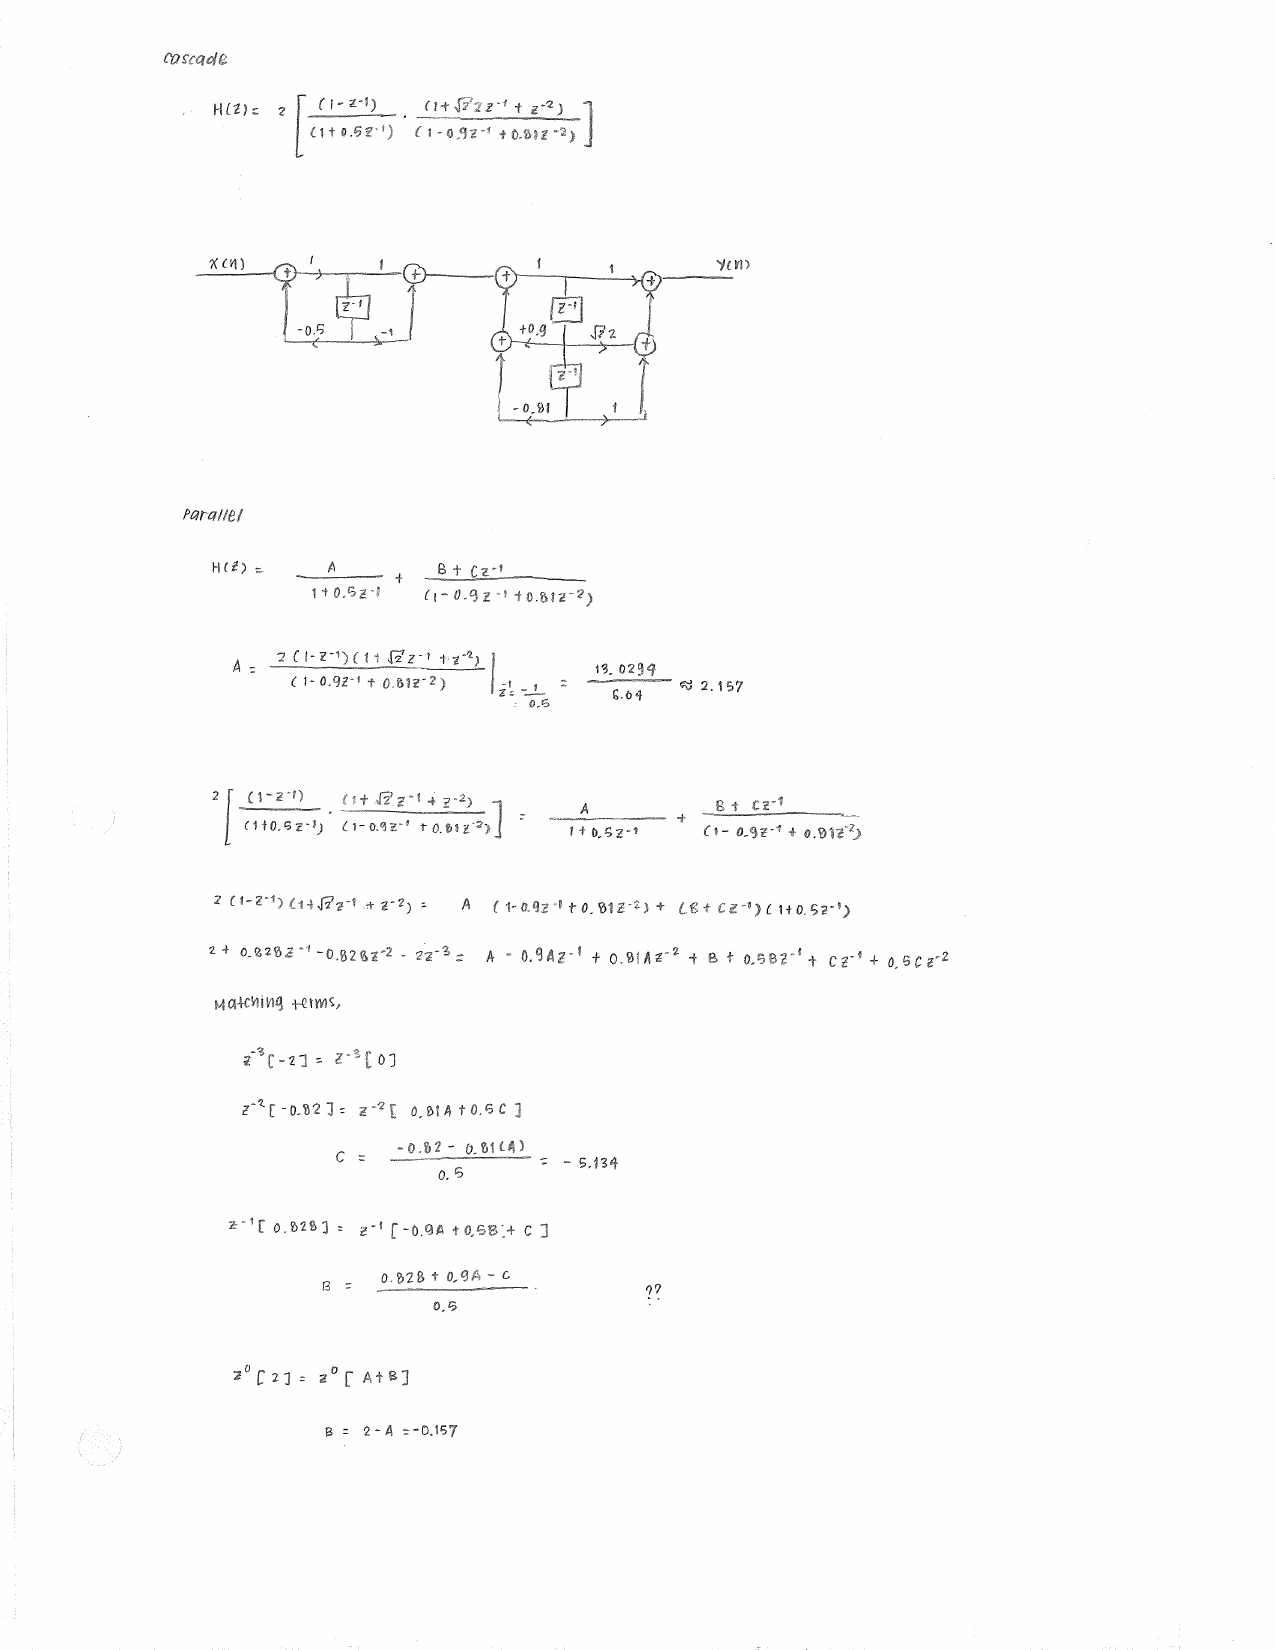 cascade
H(z) = 2 [ (1 - z^-1) / (1 + 0.5z^-1) . (1 + √2 2 z^-1 + z^-2) / (1 - 0.9z^-1 + 0.81z^-2) ]
x(n) + 1 1 + + 1 1 + y(n)
z^-1 z^-1
-0.5 -1 + +0.9 √2 2 +
z^-1
-0.81 1
Parallel
H(z) = A / (1 + 0.5z^-1) + (B + Cz^-1) / (1 - 0.9z^-1 + 0.81z^-2)
A = 2(1 - z^-1)(1 + √2 z^-1 + z^-2) / (1 - 0.9z^-1 + 0.81z^-2) | z^-1 = -1/0.5 = 13.0294 / 6.04 ≈ 2.157
2 [ (1 - z^-1) / (1 + 0.5z^-1) . (1 + √2 z^-1 + z^-2) / (1 - 0.9z^-1 + 0.81z^-2) ] = A / (1 + 0.5z^-1) + (B + Cz^-1) / (1 - 0.9z^-1 + 0.81z^-2)
2(1 - z^-1)(1 + √2 z^-1 + z^-2) = A (1 - 0.9z^-1 + 0.81z^-2) + (B + Cz^-1)(1 + 0.5z^-1)
2 + 0.828z^-1 - 0.828z^-2 - 2z^-3 = A - 0.9Az^-1 + 0.81Az^-2 + B + 0.5Bz^-1 + Cz^-1 + 0.5Cz^-2
Matching terms,
z^-3 [-2] = z^-3 [0]
z^-2 [-0.82] = z^-2 [0.81A + 0.5C]
C = (-0.82 - 0.81(A)) / 0.5 = -5.134
z^-1 [0.828] = z^-1 [-0.9A + 0.5B + C]
B = (0.828 + 0.9A - C) / 0.5 ??
z^0 [2] = z^0 [A + B]
B = 2 - A = -0.157